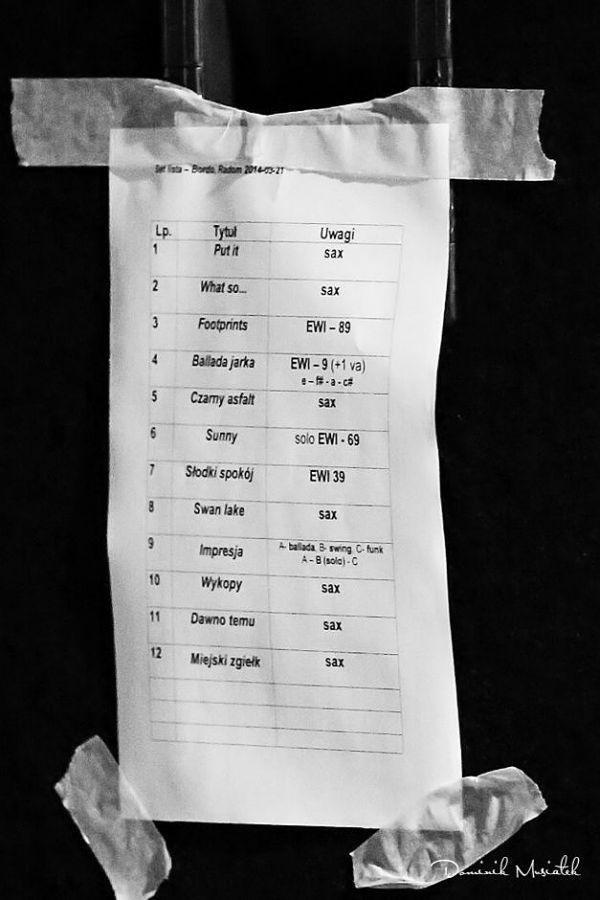 Set lista – Bordo, Radom 2014-03-21
Lp. Tytuł Uwagi
1 Put it sax
2 What so... sax
3 Footprints EWI – 89
4 Ballada jarka EWI – 9 (+1 va)
e – f# - a - c#
5 Czarny asfalt sax
6 Sunny solo EWI - 69
7 Słodki spokój EWI 39
8 Swan lake sax
9 Impresja A- ballada, B- swing, C- funk
A – B (solo) - C
10 Wykopy sax
11 Dawno temu sax
12 Miejski zgiełk sax
Dominik Musiałek